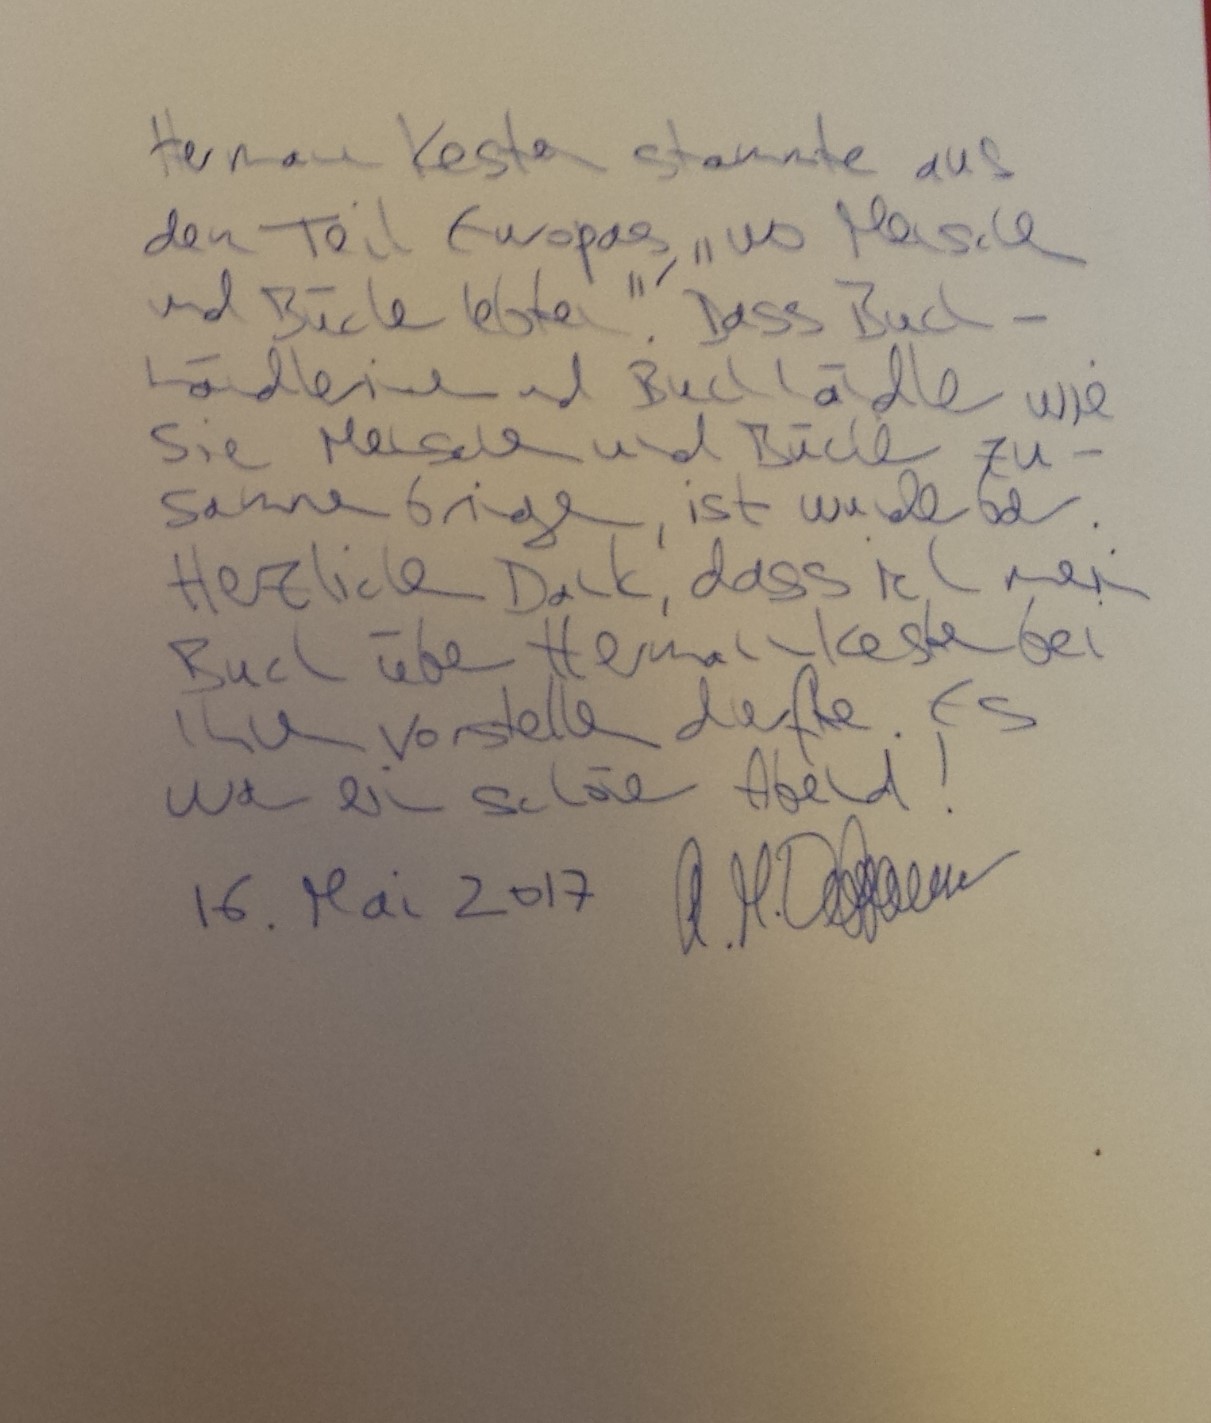 Hermann Kesten stammte aus
dem Teil Europas, „wo Menschen
und Bücher lebten". Dass Buch-
händlerinnen und Buchhändler wie
Sie Menschen und Bücher zu-
sammenbringen, ist wunderbar.
Herzlichen Dank, dass ich mein
Buch über Hermann Kesten bei
Ihnen vorstellen durfte. Es
war ein schöner Abend!
16. Mai 2017